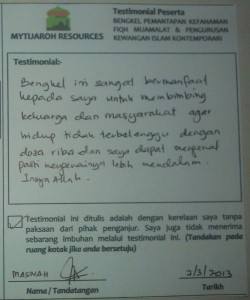 Testimonial Peserta
BENGKEL PEMANTAPAN KEFAHAMAN
FIQH MUAMALAT & PENGURUSAN
KEWANGAN ISLAM KONTEMPORARI
MYTIJAROH RESOURCES
Testimonial:-
Bengkel ini sangat bermanfaat
kepada saya untuk membimbing
keluarga dan masyarakat agar
hidup tidak terbelenggu dengan
dosa riba dan saya dapat mengenal
pasti mengenainya lebih mendalam.
Insya Allah.
Testimonial ini ditulis adalah dengan kerelaan saya tanpa
paksaan dari pihak penganjur. Saya juga tidak menerima
sebarang imbuhan melalui testimonial ini. (Tandakan pada
ruang kotak jika anda bersetuju)
MASNAH
2/3/2013
Nama / Tandatangan
Tarikh